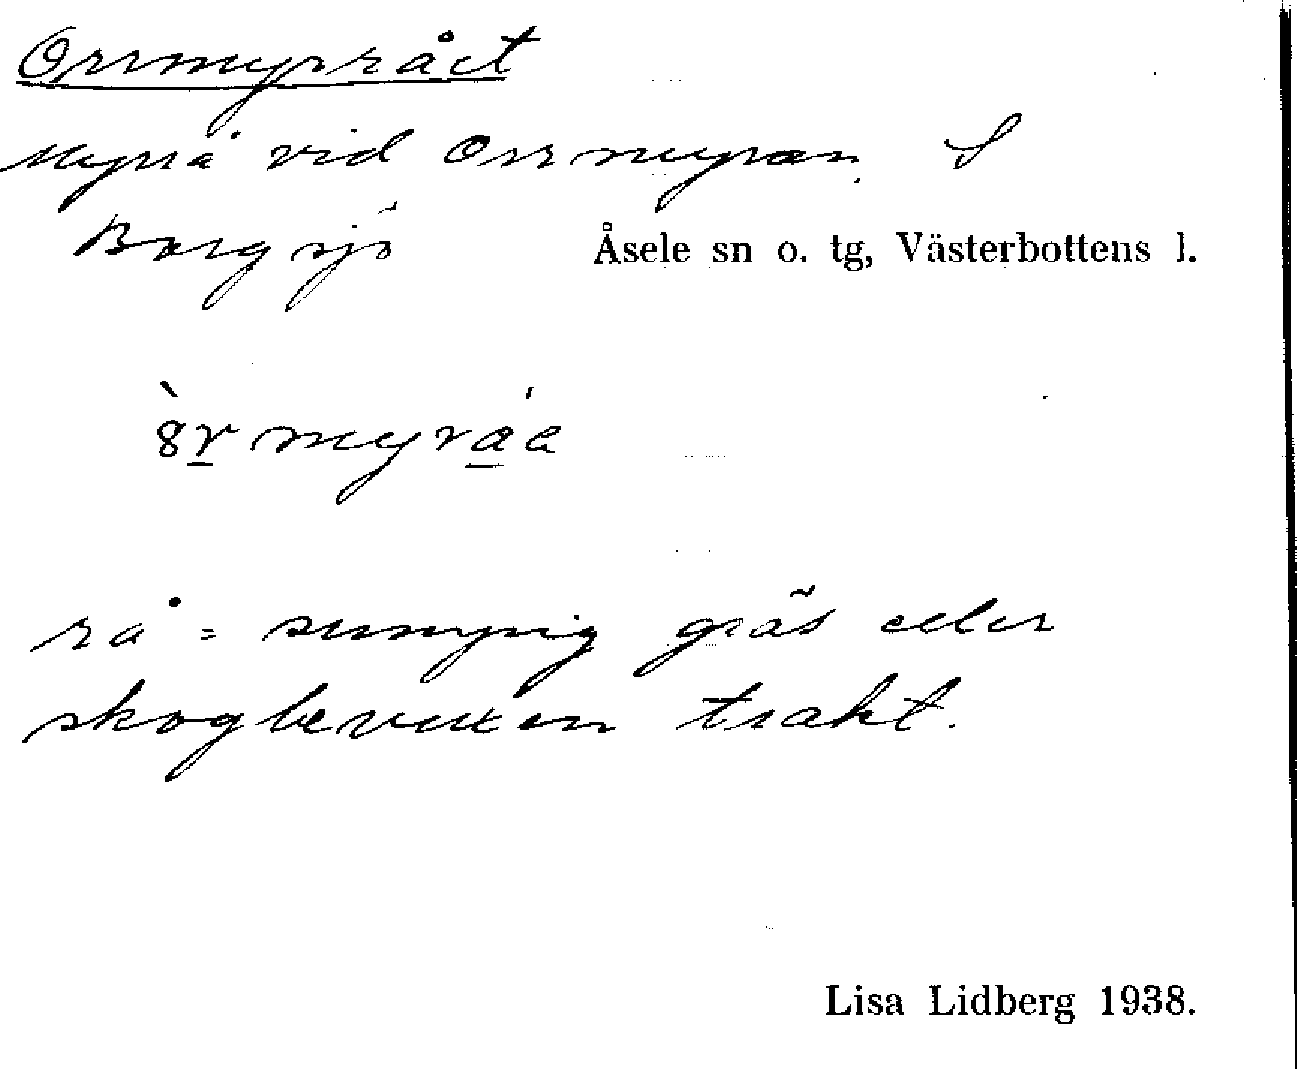 Orrmyrråct
Myrrå vid Orrmyran. S
Borgsjö Åsele sn o. tg, Västerbottens l.
8̀r̲myra̲̍a
rå = sumpig gräs eller
skogbevuxen trakt.
Lisa Lidberg 1938.